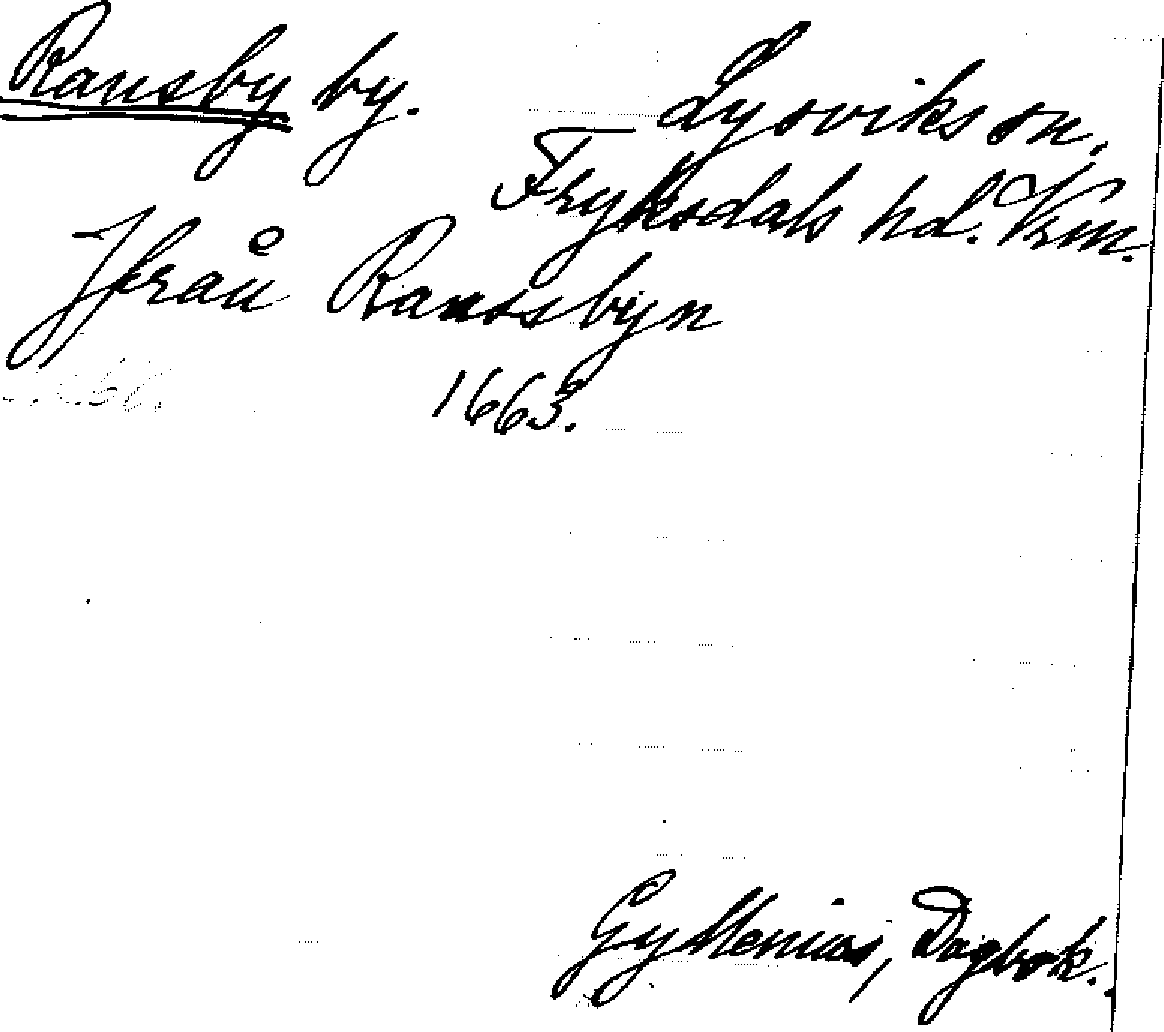 Ransby by. Lysviks sn,
Fryksdals hd. Vrm.
Ifrån Ranssbyn
1663.
Gyllenius, Dagbok.